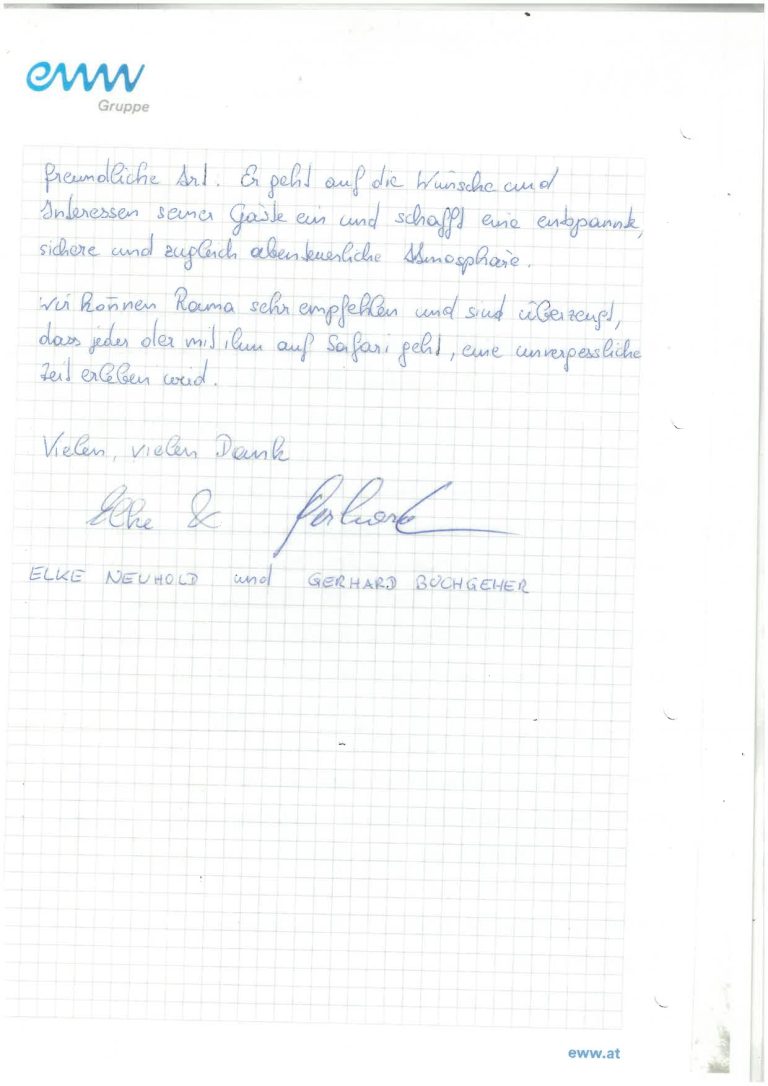 eww
Gruppe
freundliche Art. Er geht auf die Wünsche und
Interessen seiner Gäste ein und schafft eine entspannte,
sichere und zugleich abenteuerliche Atmosphäre.
Wir können Rama sehr empfehlen und sind überzeugt,
dass jeder der mit ihm auf Safari geht, eine unvergessliche
Zeit erleben wird.
Vielen, vielen Dank
Elke & Gerhard
ELKE NEUHOLD und GERHARD BUCHGEHER
eww.at